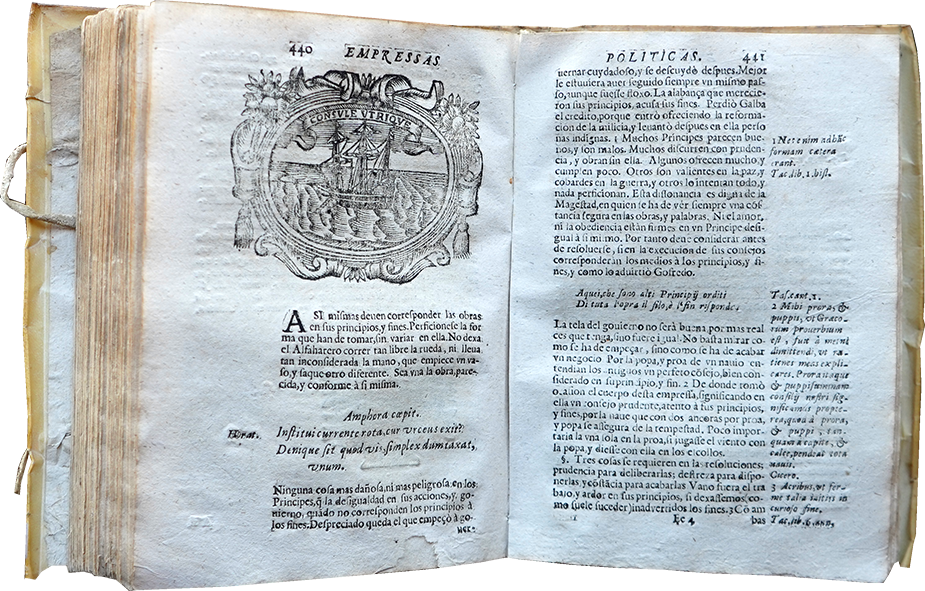 440 EMPRESSAS
CONSULE UTRIQUE
ASI mismas deuen corresponder las obras
en sus principios, y fines. Perficionese la for
ma que han de tomar, sin variar en ella. No dexa
el Alfaharero correr tan libre la rueda, ni lleua
tan inconsiderada la mano, que empiece vn va-
so, y saque otro diferente. Sea vna la obra, pare-
cida, y conforme à si misma.
Amphora cœpit.
Horat. Institui currente rota, cur vrceus exit?
Denique sit quod vis, simplex dumtaxat,
vnum.
Ninguna cosa mas dañosa, ni mas peligrosa en los
Principes, q̃ la desigualdad en sus acciones, y go-
uierno, quãdo no corresponden los principios à
los fines. Despreciado queda el que empeçò à go-
uer-
POLITICAS. 441
uernar cuydadoso, y se descuydò despues. Mejor
le estuuiera auer seguido siempre vn mismo pas-
so, aunque fuesse floxo. La alabança que merecie-
ron sus principios, acusa sus fines. Perdiò Galba
el credito, porque entrò ofreciendo la reforma-
cion de la milicia, y leuantò despues en ella perso
nas indignas. 1 Muchos Principes parecen bue-
nos, y son malos. Muchos discurren con pruden-
cia, y obran sin ella. Algunos ofrecen mucho, y
cumplen poco. Otros son valientes en la paz, y
cobardes en la guerra, y otros lo intentan todo, y
nada perficionan. Esta dissonancia es digna de la
Magestad, en quien se ha de ver siempre vna cõs-
tancia segura en las obras, y palabras. Ni el amor,
ni la obediencia estàn firmes en vn Principe desi-
gual à si mismo. Por tanto deue considerar antes
de resoluerse, si en la execucion de sus consejos
corresponderàn los medios à los principios, y fi-
nes, y como lo aduirtiò Gofredo.
Aquei, che sono alti Principij orditi
Di tuta l'opra il filo, è il fin risponde.
La tela del gouierno no serà buena, por mas real
ces que tenga, sino fuere igual. No basta mirar co-
mo se ha de empeçar, sino como se ha de acabar
vn negocio. Por la popa, y proa de vn nauio en-
tendian los antiguos vn perfeto consejo, bien con-
siderado en su principio, y fin. 2 De donde tomò
ocasion el cuerpo desta empressa, significando en
ella vn consejo prudente, atento à sus principios,
y fines, por la naue que con dos ancoras por proa,
y popa se assegura de la tempestad. Poco impor-
taria la vna sola en la proa, si jugasse el viento con
la popa, y diesse con ella en los escollos.
§. Tres cosas se requieren en las resoluciones;
prudencia para deliberarlas; destreza para dispo-
nerlas, y cõstãcia para acabarlas. Vano fuera el tra
bajo, y ardor en sus principios, si dexassemos (co-
mo suele suceder) inadvertidos los fines. 3 Cõ am
Ee 4 bas
1 Nec enim ad hãc
formam cætera
erant.
Tac. lib. 1. hist.
Tas. cant. 1.
2 Mihi prora, &
puppis, vt Græco-
rum prouerbium
est, fuit à me tui
dimittendi, vt ra-
tiones meas expli-
cares. Prora itaque
& puppi summam
consilij nostri sig-
nificamus propte-
rea, quod à prora,
& puppi, tan-
quam à capite, &
calce, pendeat tota
nauis.
Cicero.
3 Acribus, vt fer-
me talia initiis in
curioso fine.
Tac. lib. 6. ann.